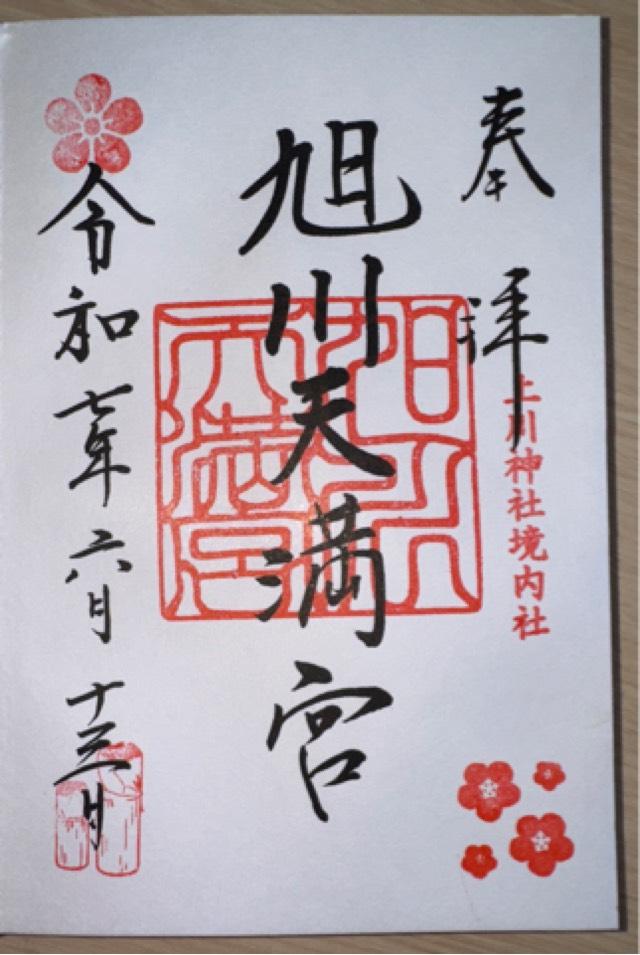 奉拝
上川神社境内社
旭川天満宮
旭川天満宮
令和七年六月十三日